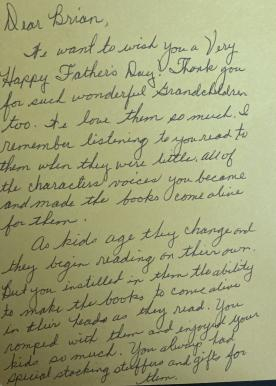 Dear Brian,
We want to wish you a Very
Happy Father's Day! Thank you
for such wonderful Grandchildren
too. We love them so much. I
remember listening to you read to
them when they were little, all of
the characters' voices you became
and made the books come alive
for them.
As kids age they change and
they begin reading on their own.
But you instilled in them the ability
to make the books to come alive
in their heads as they read. You
romped with them and enjoyed your
kids so much. You always had
special stocking stuffers and gifts for
them.